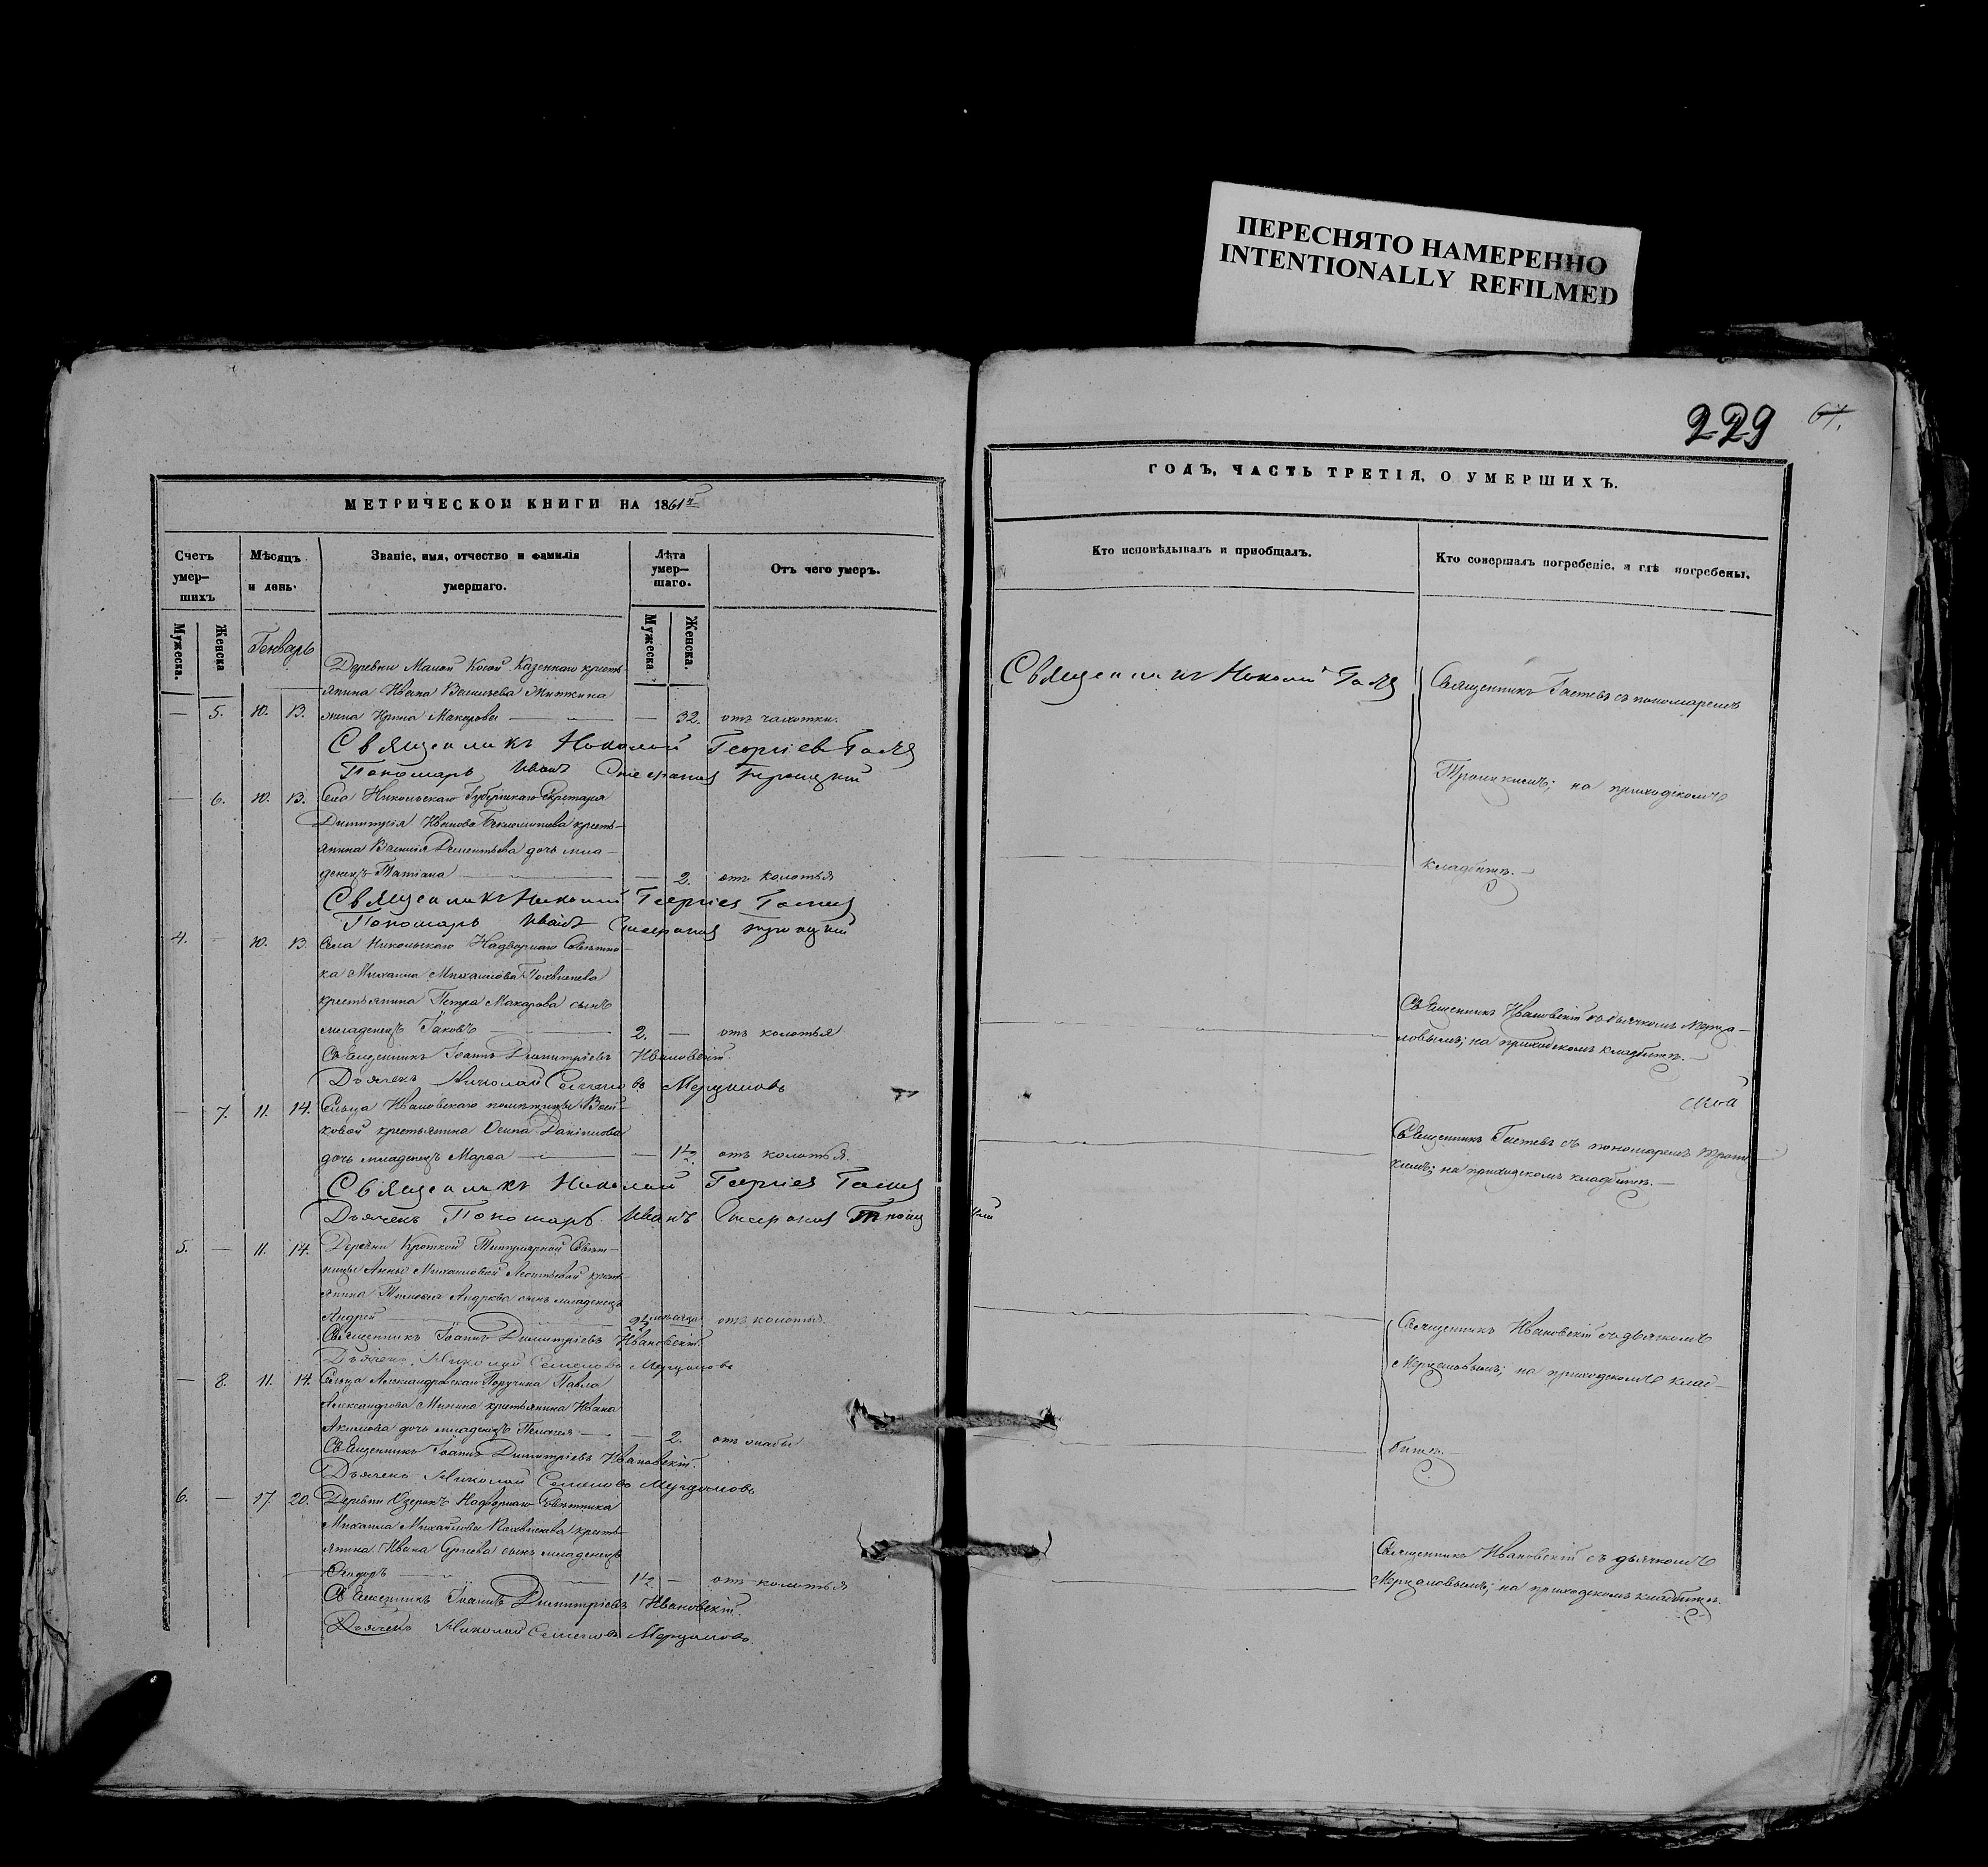 ПЕРЕСНЯТО НАМЕРЕННО
INTENTIONALLY REFILMED
229 67.
МЕТРИЧЕСКОЙ КНИГИ НА 1861й
Счетъ умер–шихъ
Мѣсяцъ и день.
Званіе, имя, отчество и фамилія умершаго.
Лѣта умер–шаго.
Отъ чего умеръ.
Мужеска.
Женска
Генварь
Мужеска.
Женска.
Деревни Малой Казеннаго кресть-
янина Ивана Васильева
— 5. 10. 13. жена Ирина Макарова — — 32. отъ чахотки.
Священникъ Николай Георгіев
Пономарь Иванъ Троицкій
— 6. 10. 13. Села Никольскаго Губернскаго Секретаря
Димитрія Иванова крестья-
янина Василія Дементьева дочь мла-
денецъ Татіана — — 2. отъ колотья
Священникъ Николай Георгіев
Пономарь Иванъ Троицкій
4. — 10. 13. Села Никольскаго Надворнаго Совѣтни-
ка Михаила Михайлова Похвиснева
крестьянина Петра Макарова сынъ
младенецъ Іаковъ — 2. — отъ колотья
Священникъ Іоаннъ Димитріевъ Ивановскій.
Дьячекъ Николай Семеновъ Мерцаловъ
— 7. 11. 14. Сельца Ивановскаго помѣщицы Вой-
ковой крестьянина Осипа Даніилова
дочь младенецъ Марѳа — — 1½. отъ колотья.
Священникъ Николай Георгіев
Дьячекъ Пономарь Иванъ Троицкій
5. — 11. 14. Деревни Кроткой Титулярной Совѣт-
ницы Анны Михайловой Леонтьевой кресть-
янина Тимоѳея Андреева сынъ младенецъ
Андрей — 2½ мѣсяца отъ колотья.
Священникъ Іоаннъ Димитріевъ Ивановскій.
Дьячекъ Николай Семеновъ Мерцаловъ
— 8. 11. 14. Сельца Александровскаго Поручика Павла
Александрова Минина крестьянина Ивана
Акимова дочь младенецъ Пелагея — — 2. отъ
Священникъ Іоаннъ Димитріевъ Ивановскій.
Дьячекъ Николай Семеновъ Мерцаловъ
6. — 17. 20. Деревни Озерокъ Надворнаго Совѣтника
Михаила Михайлова Похвиснева кресть-
янина Ивана Сергѣева сынъ младенецъ
Ѳеодоръ — 1½ — отъ колотья
Священникъ Іоаннъ Димитріевъ Ивановскій.
Дьячекъ Николай Семеновъ Мерцаловъ.
ГОДЪ, ЧАСТЬ ТРЕТІЯ, О УМЕРШИХЪ.
Кто исповѣдывалъ и пріобщалъ.
Кто совершалъ погребеніе, и гдѣ погребены.
Священникъ Николай
Священникъ Гастевъ съ пономаремъ
Троицкимъ; на приходскомъ
кладбищѣ. —
Священникъ Ивановскій съ дьячкомъ Мерца-
ловымъ; на приходскомъ кладбищѣ. —
Священникъ Гастевъ съ пономаремъ Троиц-
кимъ; на приходскомъ кладбищѣ. —
Священникъ Ивановскій съ дьячкомъ
Мерцаловымъ; на приходскомъ клад-
бищѣ.
Священникъ Ивановскій съ дьячкомъ
Мерцаловымъ; на приходскомъ кладбищѣ.